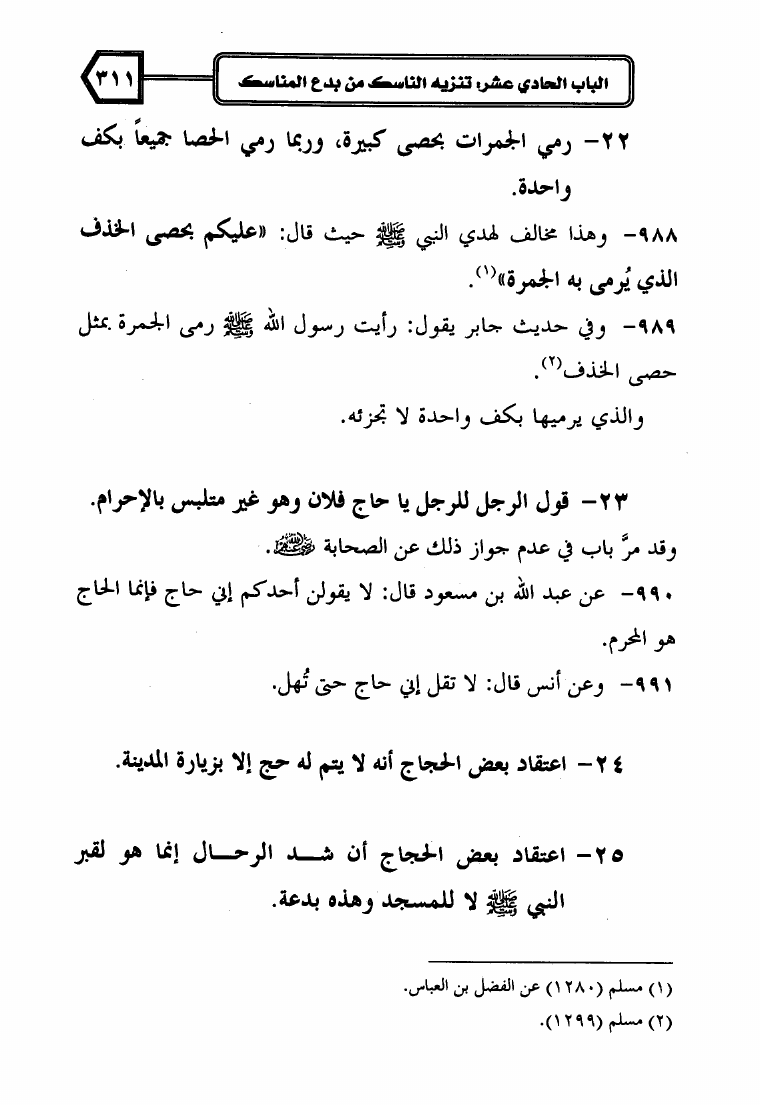 الباب الحادي عشر: تنزيه الناسك من بدع المناسك
٣١١
٢٢- رمي الجمرات بحصى كبيرة، وربما رمي الحصا جميعاً بكف
واحدة.
٩٨٨- وهذا مخالف لهدي النبي ﷺ حيث قال: «عليكم بحصى الخذف
الذي يُرمى به الجمرة»(١).
٩٨٩- وفي حديث جابر يقول: رأيت رسول الله ﷺ رمى الجمرة بمثل
حصى الخذف(٢).
والذي يرميها بكف واحدة لا تجزئه.
٢٣- قول الرجل للرجل يا حاج فلان وهو غير متلبس بالإحرام.
وقد مرَّ باب في عدم جواز ذلك عن الصحابة رضي الله عنهم.
٩٩٠- عن عبد الله بن مسعود قال: لا يقولن أحدكم إني حاج فإنما الحاج
هو المحرم.
٩٩١- وعن أنس قال: لا تقل إني حاج حتى تُهل.
٢٤- اعتقاد بعض الحجاج أنه لا يتم له حج إلا بزيارة المدينة.
٢٥- اعتقاد بعض الحجاج أن شــد الرحــال إنما هو لقبر
النبي ﷺ لا للمسجد وهذه بدعة.
(١) مسلم (١٢٨٠) عن الفضل بن العباس.
(٢) مسلم (١٢٩٩).